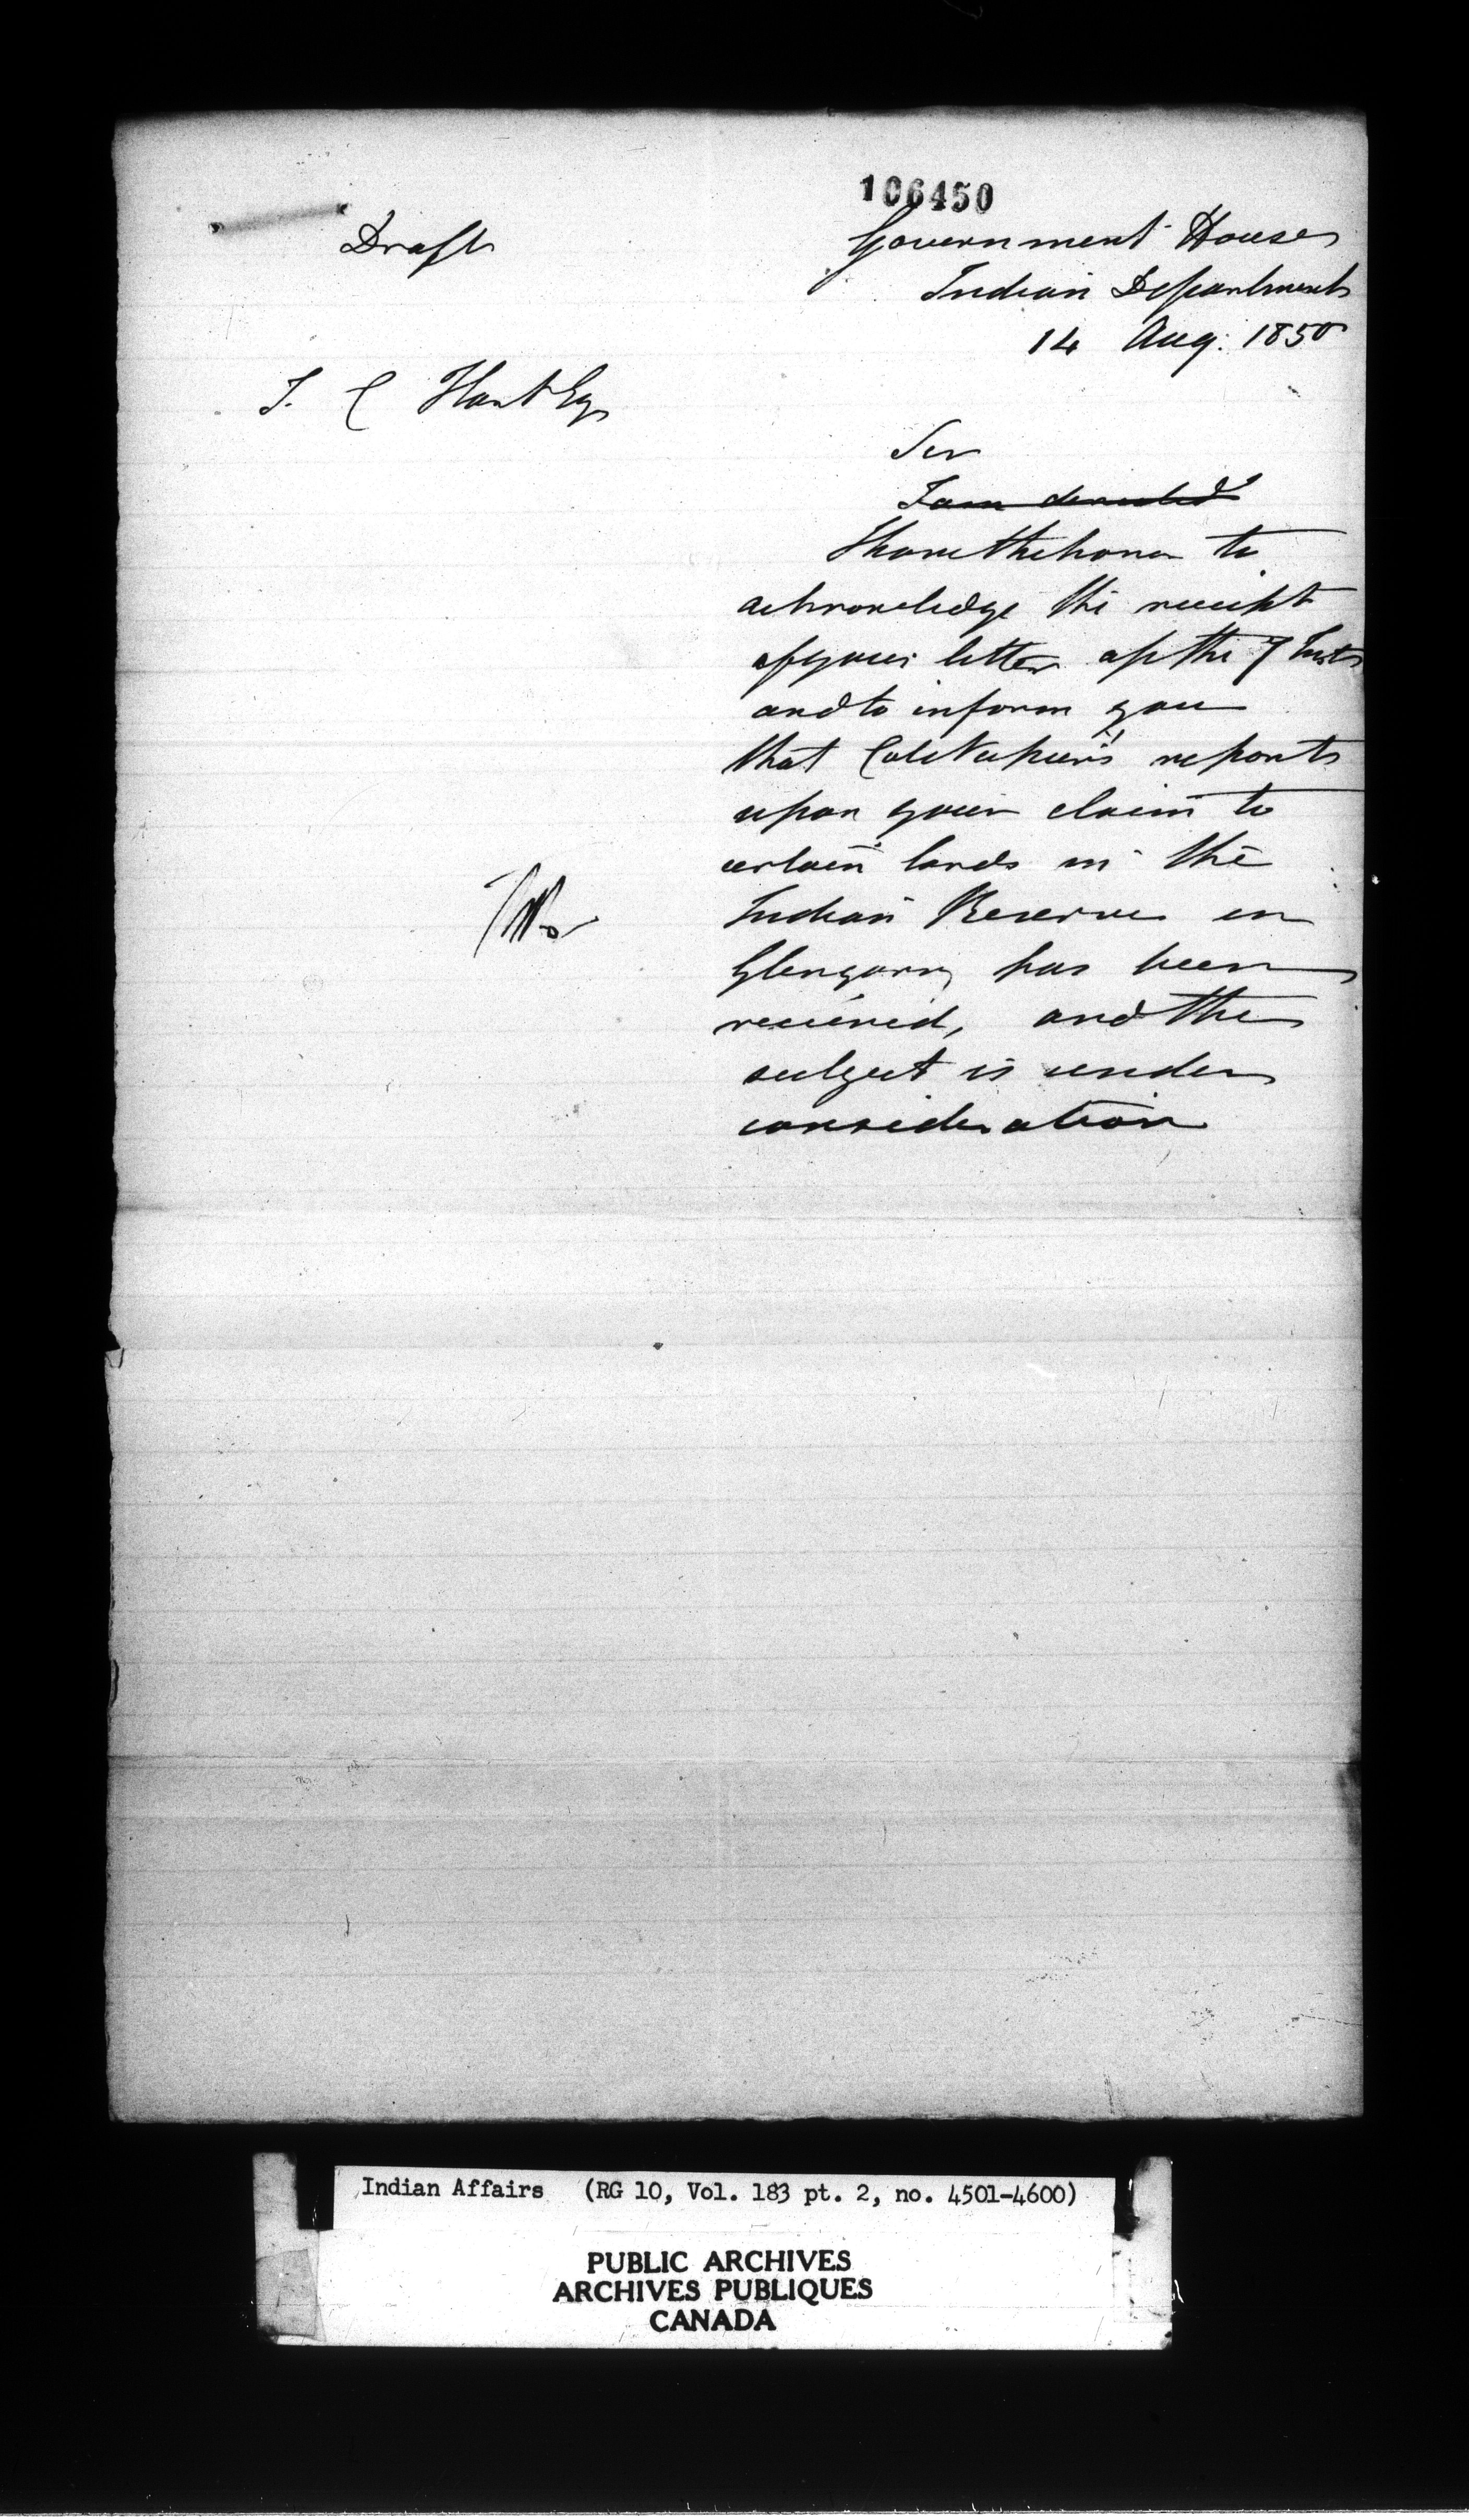 106450
Draft
Government House
Indian Department
14 Aug. 1850
T. C Hart Esq
Sir
I am directed
I have the honor to
acknowledge the receipt
of your letter of the 7 Inst
and to inform you
that Col Napier's report
upon your claim to
certain lands in the
Indian Reserve in
Glengarry has been
received, and the
subject is under
consideration
Indian Affairs (RG 10, Vol. 183 pt. 2, no. 4501-4600)
PUBLIC ARCHIVES
ARCHIVES PUBLIQUES
CANADA